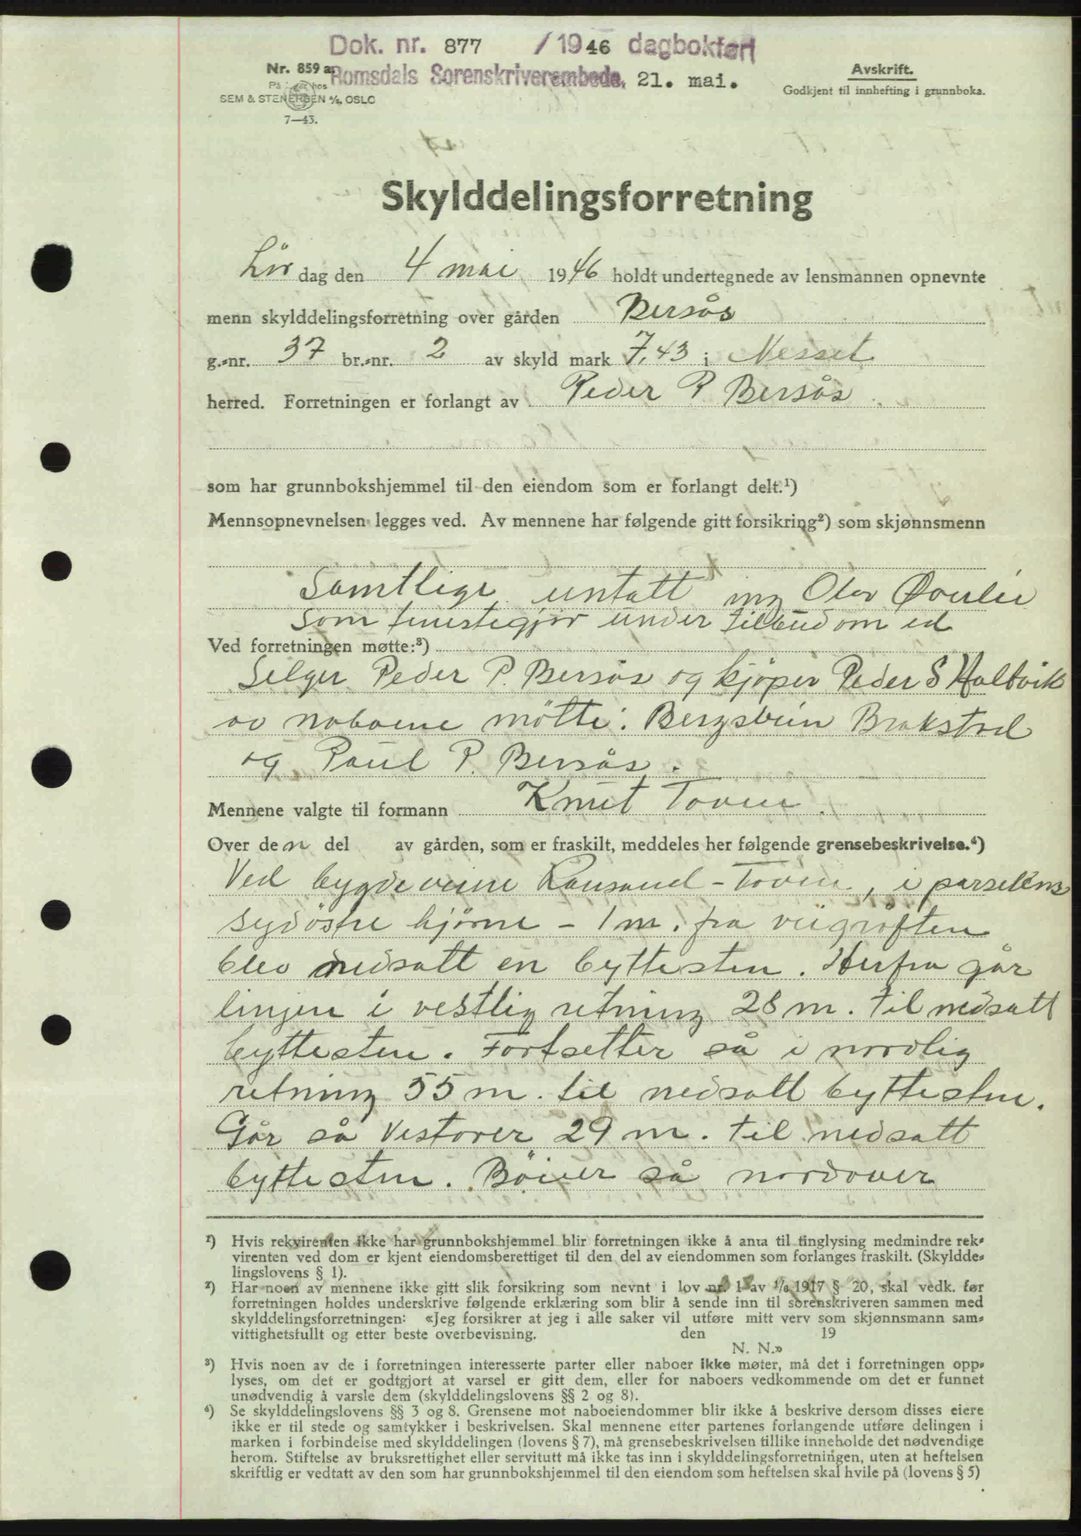 Dok. nr. 877 /1946 dagbokført
Romsdals Sorenskriverembede, 21. mai.
Nr. 859 a.
SEM & STENERSEN A/S, OSLO
7—43.
Avskrift.
Godkjent til innhefting i grunnboka.
Skylddelingsforretning
Lör dag den 4 mai 1946 holdt undertegnede av lensmannen opnevnte
menn skylddelingsforretning over gården Bersås
g.-nr. 37 br.-nr. 2 av skyld mark 7,43 i Nesset
herred. Forretningen er forlangt av Peder P Bersås.
som har grunnbokshjemmel til den eiendom som er forlangt delt.¹)
Mennsopnevnelsen legges ved. Av mennene har følgende gitt forsikring²) som skjønnsmenn
Samtlige untatt Olav Øverlie
som under ed
Ved forretningen møtte:³)
Selger Peder P. Bersås og kjöper Peder S Holtvik
av naboene mötte: Bergsvein Brakstad
og Paul P. Bersås.
Mennene valgte til formann Knut Toven.
Over den del av gården, som er fraskilt, meddeles her følgende grensebeskrivelse.⁴)
Ved bygdeveien Ranvund - Toven, i parsellens
sydöstre hjörne - 1 m. fra veigröften
blev nedsatt en byttesten. Herfra går
linjen i vestlig retning 28 m. til nedsatt
byttesten. Fortsetter så i nordlig
retning 55 m. til nedsatt byttesten.
Går så vestover 29 m. til nedsatt
byttesten. Böier så nordover
¹) Hvis rekvirenten ikke har grunnbokshjemmel blir forretningen ikke å anta til tinglysing medmindre rek-
virenten ved dom er kjent eiendomsberettiget til den del av eiendommen som forlanges fraskilt. (Skyldde-
lingslovens § 1).
²) Har noen av mennene ikke gitt slik forsikring som nevnt i lov nr. 1 av 1/6 1917 § 20, skal vedk. før
forretningen holdes underskrive følgende erklæring som blir å sende inn til sorenskriveren sammen med
skylddelingsforretningen: «Jeg forsikrer at jeg i alle saker vil utføre mitt verv som skjønnsmann sam-
vittighetsfullt og etter beste overbevisning. den 19
N. N.»
³) Hvis noen av de i forretningen interesserte parter eller naboer ikke møter, må det i forretningen opp-
lyses, om det er godtgjort at varsel er gitt dem, eller for naboers vedkommende om det er funnet
unødvendig å varsle dem (skylddelingslovens §§ 2 og 8).
⁴) Se skylddelingslovens §§ 3 og 8. Grensene mot naboeiendommer blir ikke å beskrive dersom disses eiere
ikke er til stede og samtykker i beskrivelsen. Skal mennene etter partenes forlangende utføre delingen i
marken i forbindelse med skylddelingen (lovens § 7), må grensebeskrivelsen tillike inneholde det nødvendige
herom. Stiftelse av bruksrettighet eller servitutt må ikke tas inn i skylddelingsforretningen, uten at heftelsen
skriftlig er vedtatt av den som har grunnbokshjemmel til den eiendom som heftelsen skal hvile på (lovens § 5)